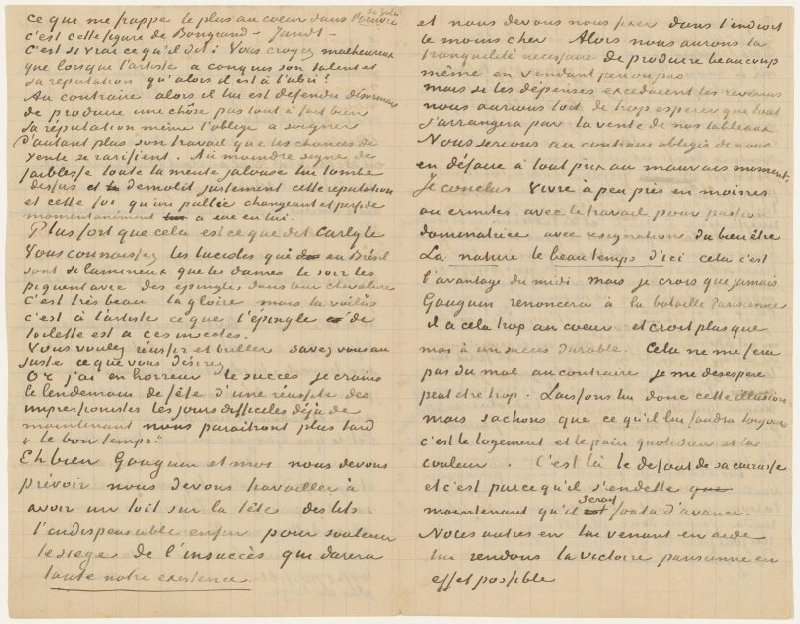 ce qui me frappe le plus au cœur dans l'œuvre de Zola
c'est cette figure de Bongrand – Jundt –
C'est si vrai ce qu'il dit: Vous croyez malheureux
que lorsque l'artiste a conquis son talent et
sa réputation qu'alors il est à l'abri!
Au contraire alors il lui est défendu désormais
de produire une chôse pas tout à fait bien
Sa réputation même l'oblige à soigner
d'autant plus son travail que les chances de
vente se raréfient. Au moindre signe de
faiblesse toute la meute jalouse lui tombe
dessus et démolit justement cette réputation
et cette foi qu'un public changeant et perfide
momentanément a eue en lui.
Plus fort que cela est ce que dit Carlyle
Vous connaissez les lucioles qui au Brésil
sont si lumineux que les dames le soir les
piquent avec des épingles dans leur chevelure
C'est très beau la gloire mais la voilà
c'est à l'artiste ce que l'épingle de
toilette est à ces insectes.
Vous voulez réussir et briller savez vous au
juste ce que vous désirez
Or j'ai en horreur le succès je crains
le lendemain de fête d'une réussite des
impressionistes les jours difficiles déjà de
maintenant nous paraitront plus tard
"le bon temps"
Eh bien Gauguin et moi nous devons
prévoir nous devons travailler à
avoir un toit sur la tête des lits
l'indispensable enfin pour soutenir
le siège de l'insuccès qui durera
toute notre existence
et nous devons nous fixer dans l'endroit
le moins cher Alors nous aurons la
tranquilité necessaire de produire beaucoup
même en vendant peu ou pas
mais si les dépenses excedaient les revenus
nous aurions tort de trop esperer que tout
s'arrangera par la vente de nos tableaux
Nous serions au contraire obligés de nous
en défaire à tout prix au mauvais moment.
Je conclus Vivre à peu près en moines
ou ermites avec le travail pour passion
dominatrice avec resignation du bien être
La nature le beau temps d'ici cela c'est
l'avantage du midi mais je crois que jamais
Gauguin renoncera à la bataille Parisienne
il a cela trop au coeur et croit plus que
moi à un succès durable. Cela ne me fera
pas du mal au contraire je me desespère
peut etre trop. Laissons lui donc cette illusion
mais sachons que ce qu'il lui faudra toujours
c'est le logement et le pain quotidien et la
couleur. C'est là le defaut de sa cuirasse
et c'est parce qu'il s'endette
maintenant qu'il serait foutu d'avance.
Nous autres en lui venant en aide
lui rendons la victoire parisienne en
effet possible